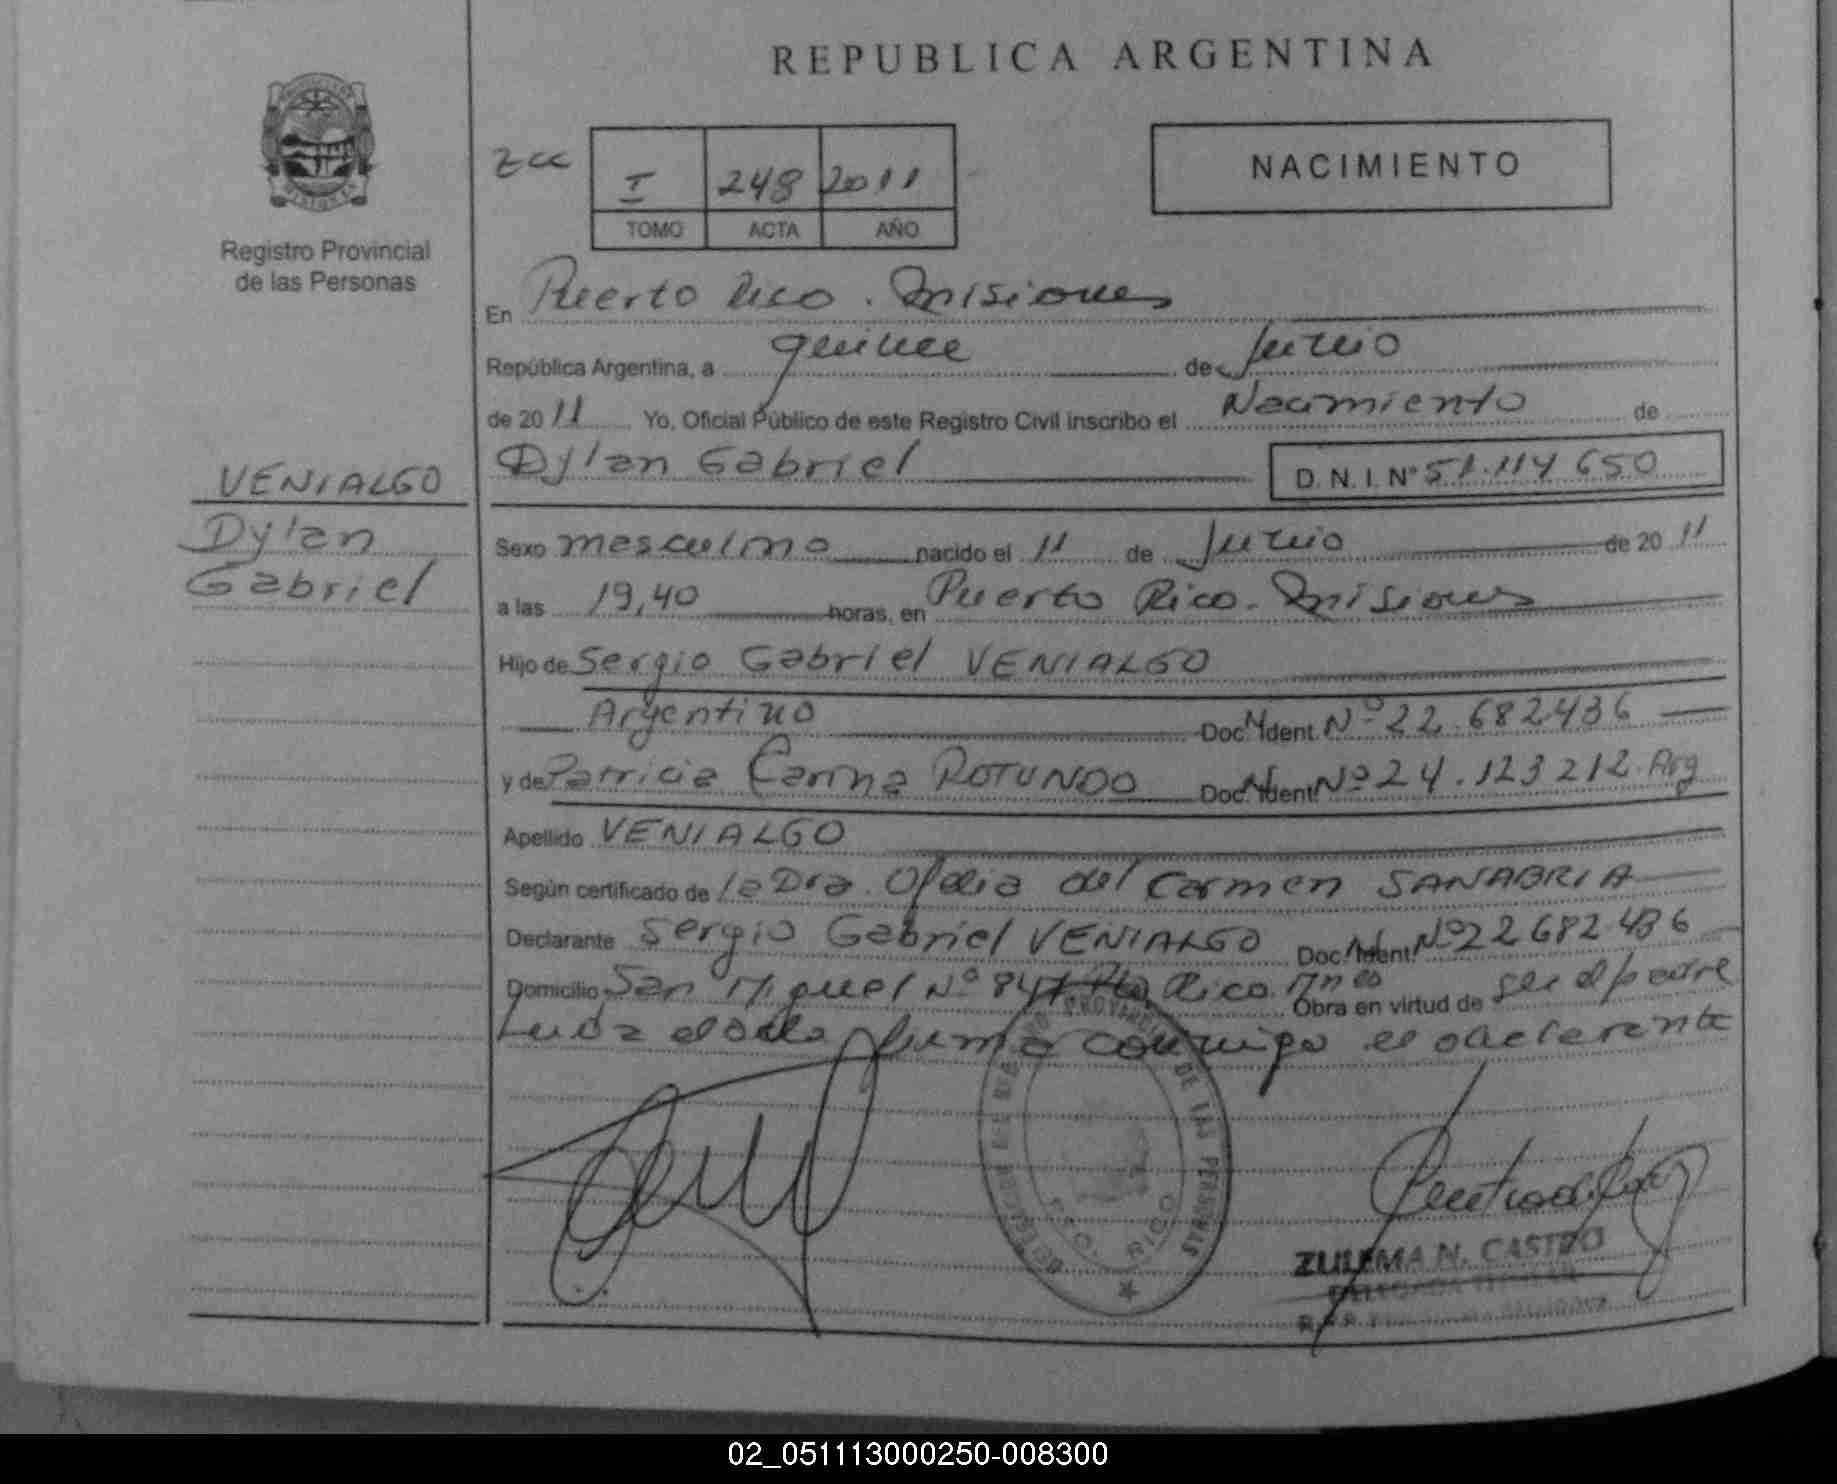 REPUBLICA ARGENTINA
Registro Provincial
de las Personas
Zcc
I 248 2011
TOMO ACTA AÑO
NACIMIENTO
En Puerto Rico. Misiones
República Argentina, a quince de Junio
de 2011 Yo, Oficial Público de este Registro Civil inscribo el Nacimiento de
Dylan Gabriel D. N. I. Nº 51.114 650
VENIALGO
Dylan
Gabriel
Sexo masculino nacido el 11 de Junio de 2011
a las 19,40 horas, en Puerto Rico. Misiones
Hijo de Sergio Gabriel VENIALGO
Argentino Doc. Ident. Nº 22.682436
y de Patricia Carina ROTUNDO Doc. Ident. Nº 24.123212. Arg
Apellido VENIALGO
Según certificado de la Dra. Ofelia del Carmen SANABRIA
Declarante Sergio Gabriel VENIALGO Doc. Ident. Nº 22682.436
Domicilio San Miguel Nº 847 Pto. Rico. Mnes Obra en virtud de ser el padre
firma conmigo el declarante
PROVINCIAL DE LAS PERSONAS
PTO. RICO
ZULEMA N. CASTRO
DELEGADA TITULAR
02_051113000250-008300